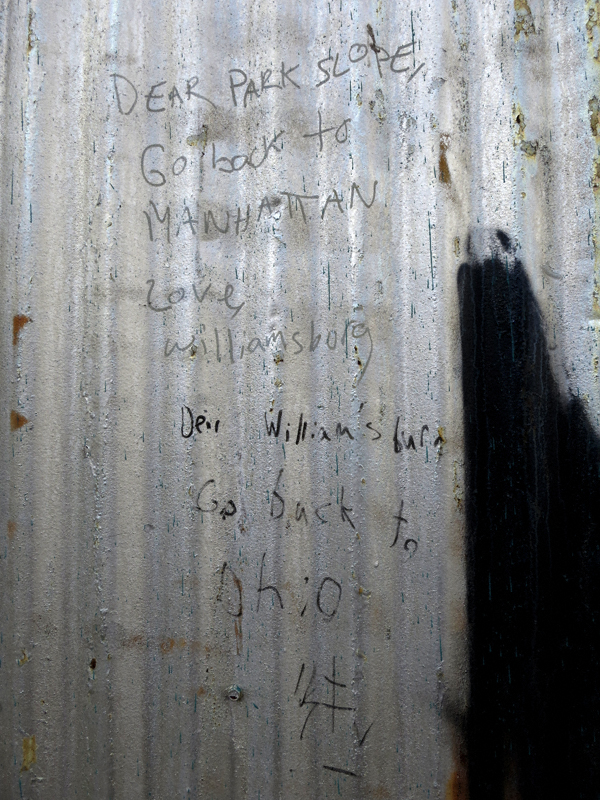 DEAR PARK SLOPE,
Go back to
MANHATTAN
Love,
Williamsburg
Dear Williamsburg
Go back to
Ohio